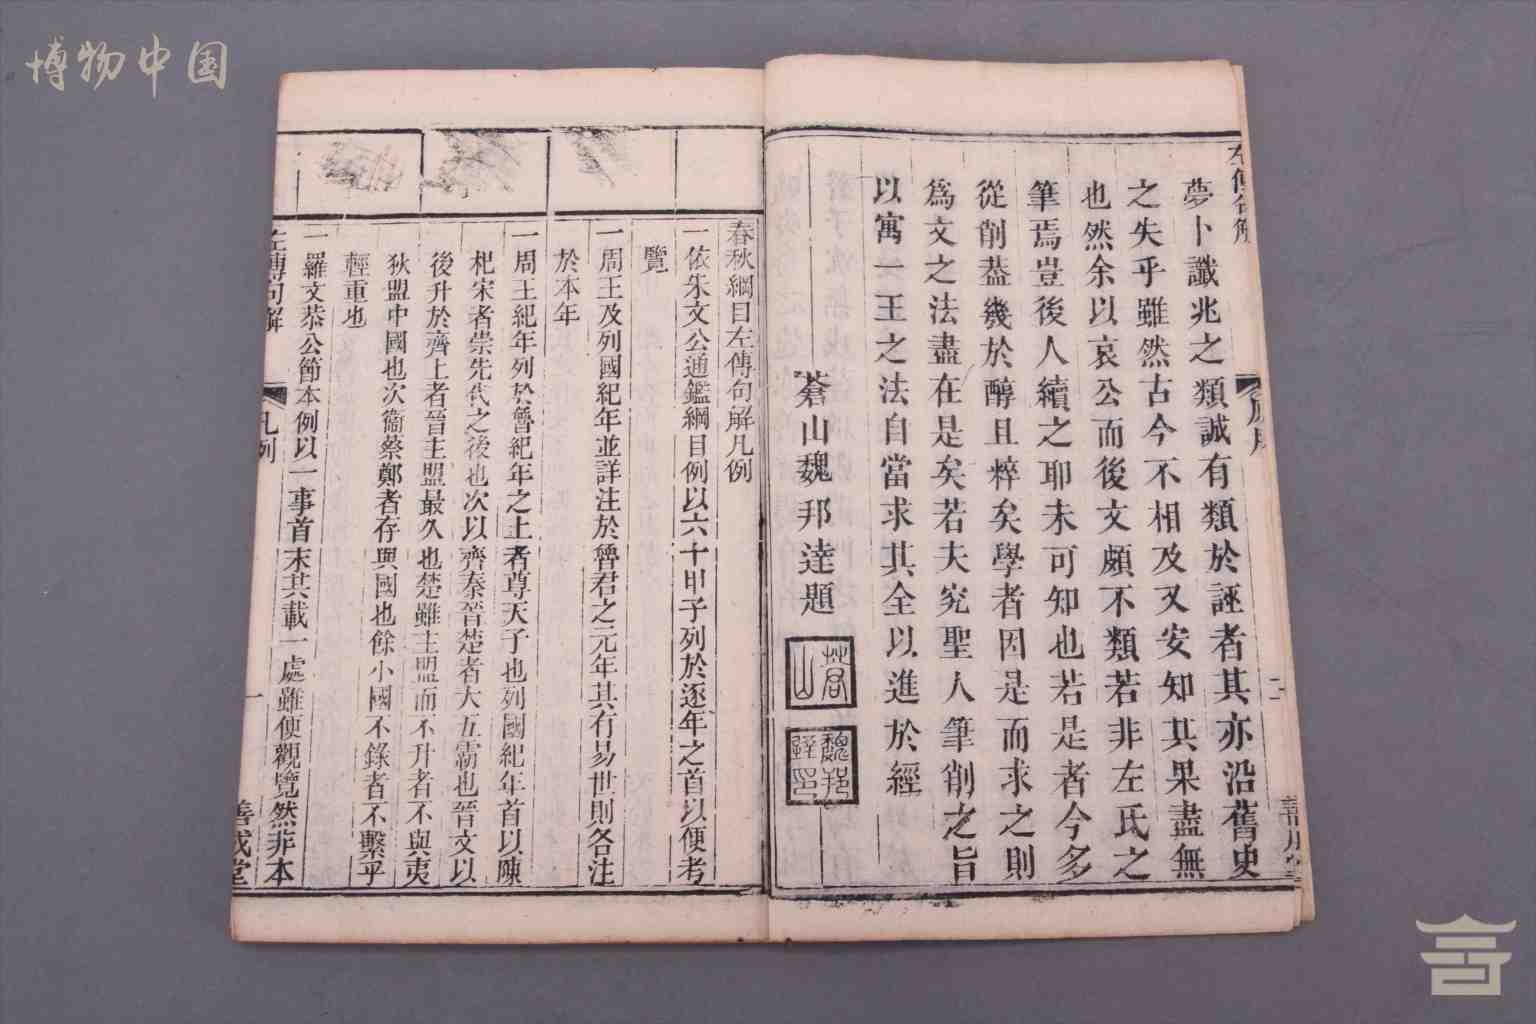 博物中国
夢卜讖兆之類誠有類於誣者其亦沿舊史
之失乎雖然古今不相及又安知其果盡無
也然余以哀公而後文頗不類若非左氏之
筆焉豈後人續之耶未可知也若是者今多
從削葢幾於醇且粹矣學者因是而求之則
爲文之法盡在是矣若夫究聖人筆削之旨
以寓一王之法自當求其全以進於經
蒼山魏邦達題
春秋綱目左傳句解凡例
一依朱文公通鑑綱目例以六十甲子列於逐年之首以便考
覽
一周王及列國紀年並詳注於魯君之元年其有易世則各注
於本年
一周王紀年列於魯紀年之上者尊天子也列國紀年首以陳
杞宋者崇先代之後也次以齊秦晉楚者大五霸也晉文以
後升於齊上者晉主盟最久也楚雖主盟而不升者不與夷
狄盟中國也次衞蔡鄭者存與國也餘小國不錄者不繫乎
輕重也
一羅文恭公節本例以一事首末共載一處雖便觀覽然非本
左傳句解
凡例
一
善成堂